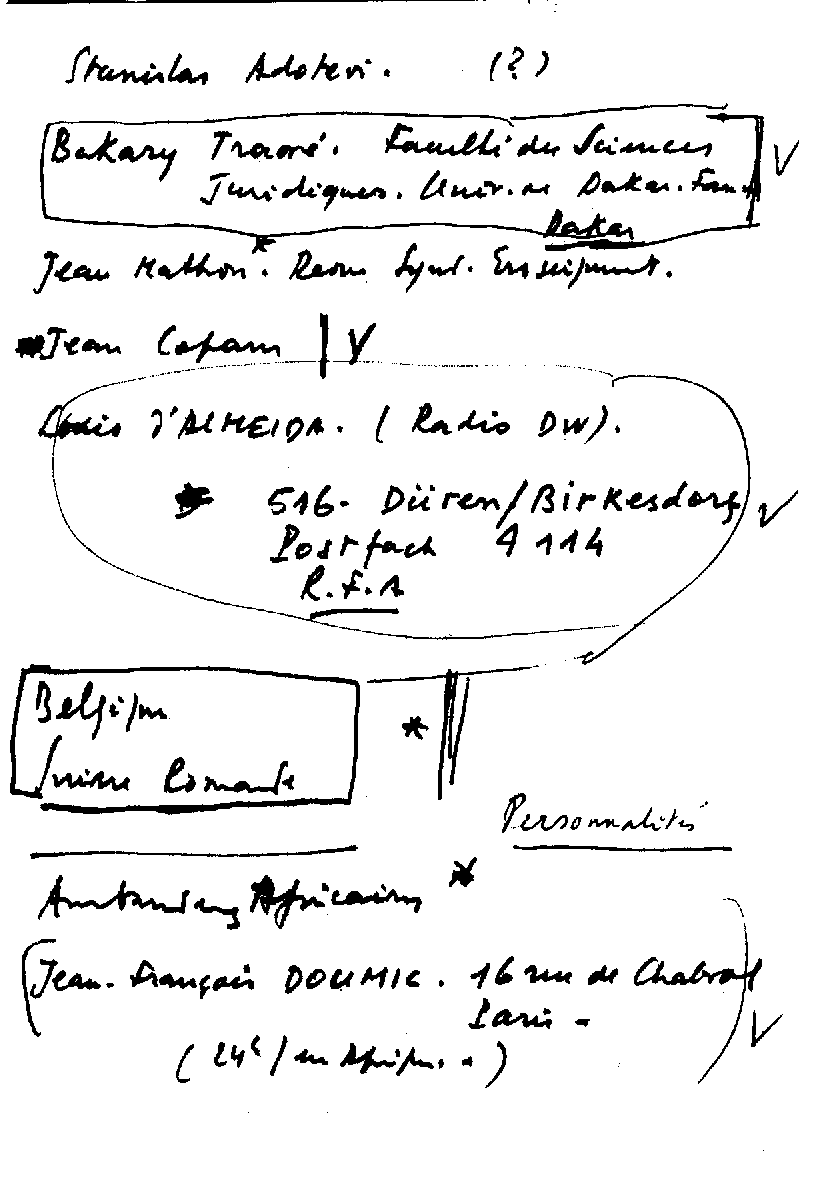 Stanislas Adotevi. (?)
Bakary Traoré. Faculté des Sciences
Juridiques. Univ. de Dakar. Fann
Dakar
Jean Mathon. Synd. Enseignent.
Jean Copans
d'ALMEIDA. (Radio DW).
516- Düren/Birkesdorf
Postfach 4114
R.F.A
Belgique
Suisse Romande
Personnalités
Ambassades Africaines
Jean-François DOUMIC. 16 rue de Chabrol
Paris -
(24h/ en Afrique.)